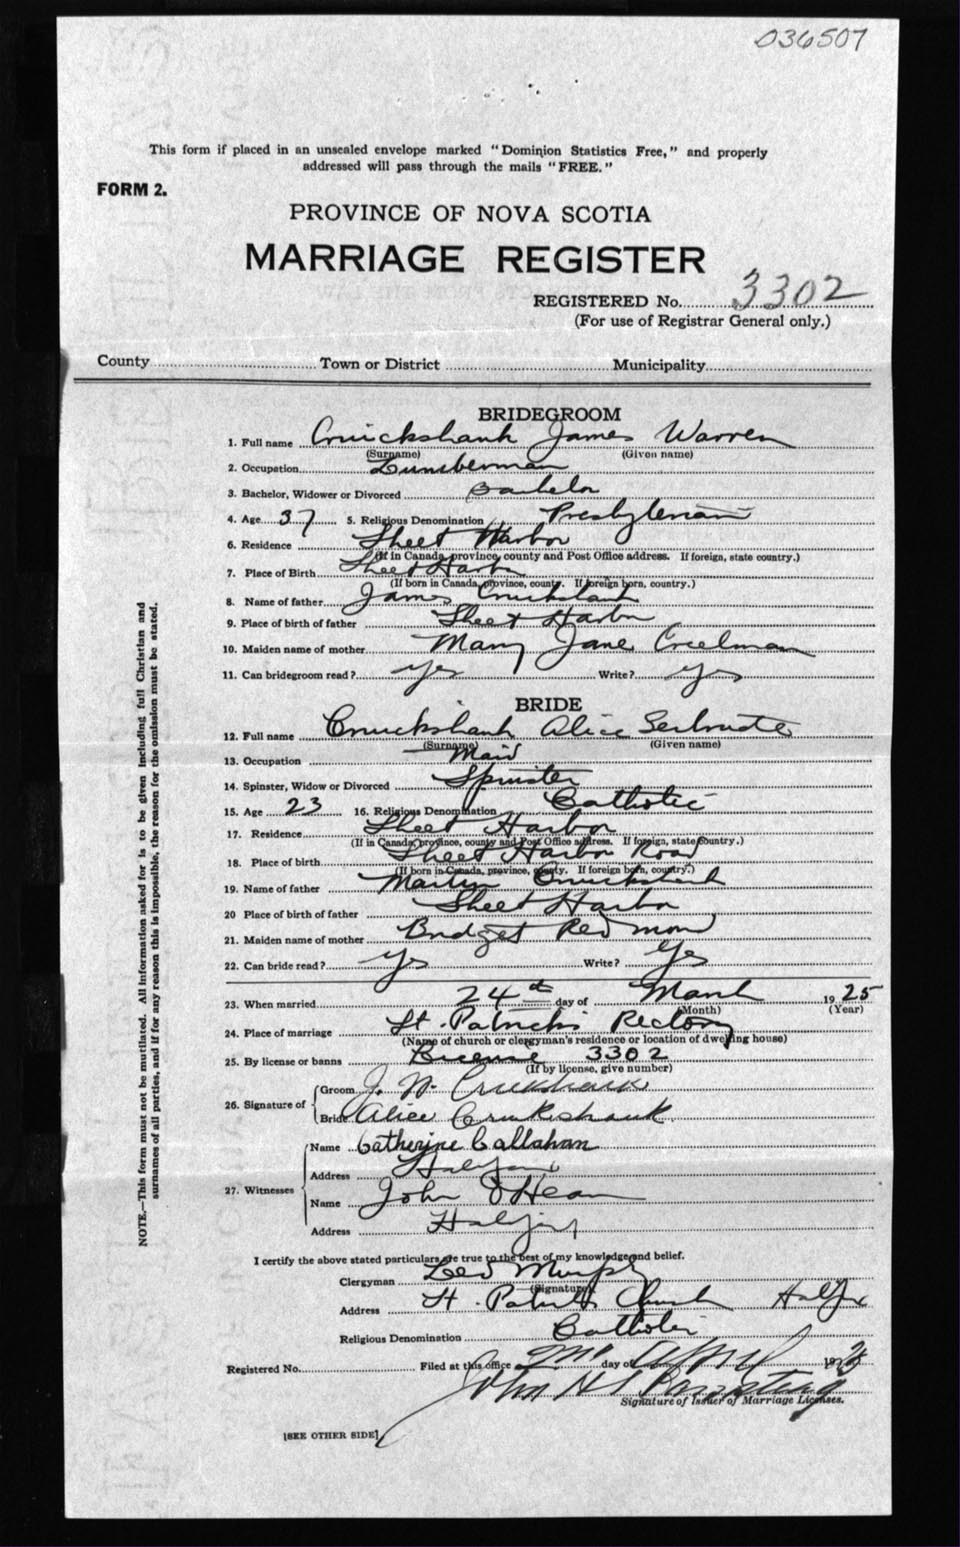 036507
This form if placed in an unsealed envelope marked "Dominion Statistics Free," and properly
addressed will pass through the mails "FREE."
FORM 2.
PROVINCE OF NOVA SCOTIA
MARRIAGE REGISTER
REGISTERED No. 3302
(For use of Registrar General only.)
County Town or District Municipality
BRIDEGROOM
1. Full name Cruickshank James Warren
(Surname) (Given name)
2. Occupation Lumberman
3. Bachelor, Widower or Divorced Bachelor
4. Age 37 5. Religious Denomination Presbyterian
6. Residence Sheet Harbor
(If in Canada, province, county and Post Office address. If foreign, state country.)
7. Place of Birth Sheet Harbor
(If born in Canada, province, county. If foreign born, country.)
8. Name of father James Cruikshank
9. Place of birth of father Sheet Harbor
10. Maiden name of mother Mary Jane Creelman
11. Can bridegroom read? yes Write? yes
BRIDE
12. Full name Cruickshank Alice Gertrude
(Surname) (Given name)
13. Occupation Maid
14. Spinster, Widow or Divorced Spinster
15. Age 23 16. Religious Denomination Catholic
17. Residence Sheet Harbor
(If in Canada, province, county and Post Office address. If foreign, state country.)
18. Place of birth Sheet Harbor Road
(If born in Canada, province, county. If foreign born, country.)
19. Name of father Martin Cruickshank
20 Place of birth of father Sheet Harbor
21. Maiden name of mother Bridget Redmond
22. Can bride read? yes Write? Yes
23. When married 24th day of March 1925
(Month) (Year)
24. Place of marriage St. Patrick's Rectory
(Name of church or clergyman's residence or location of dwelling house)
25. By license or banns License 3302
(If by license, give number)
26. Signature of Groom J. W. Cruikshank
Bride Alice Cruikshank
27. Witnesses Name Catherine Callahan
Address Halifax
Name John O'Hearn
Address Halifax
I certify the above stated particulars are true to the best of my knowledge and belief.
Clergyman Leo Murphy
(Signature)
Address St. Patrick's Church Halifax
Religious Denomination Catholic
Registered No. Filed at this office 2nd day of April 1925
John
Signature of Issuer of Marriage Licenses.
[SEE OTHER SIDE]
NOTE.—This form must not be mutilated. All information asked for is to be given including full Christian and
surnames of all parties, and if for any reason this is impossible, the reason for the omission must be stated.